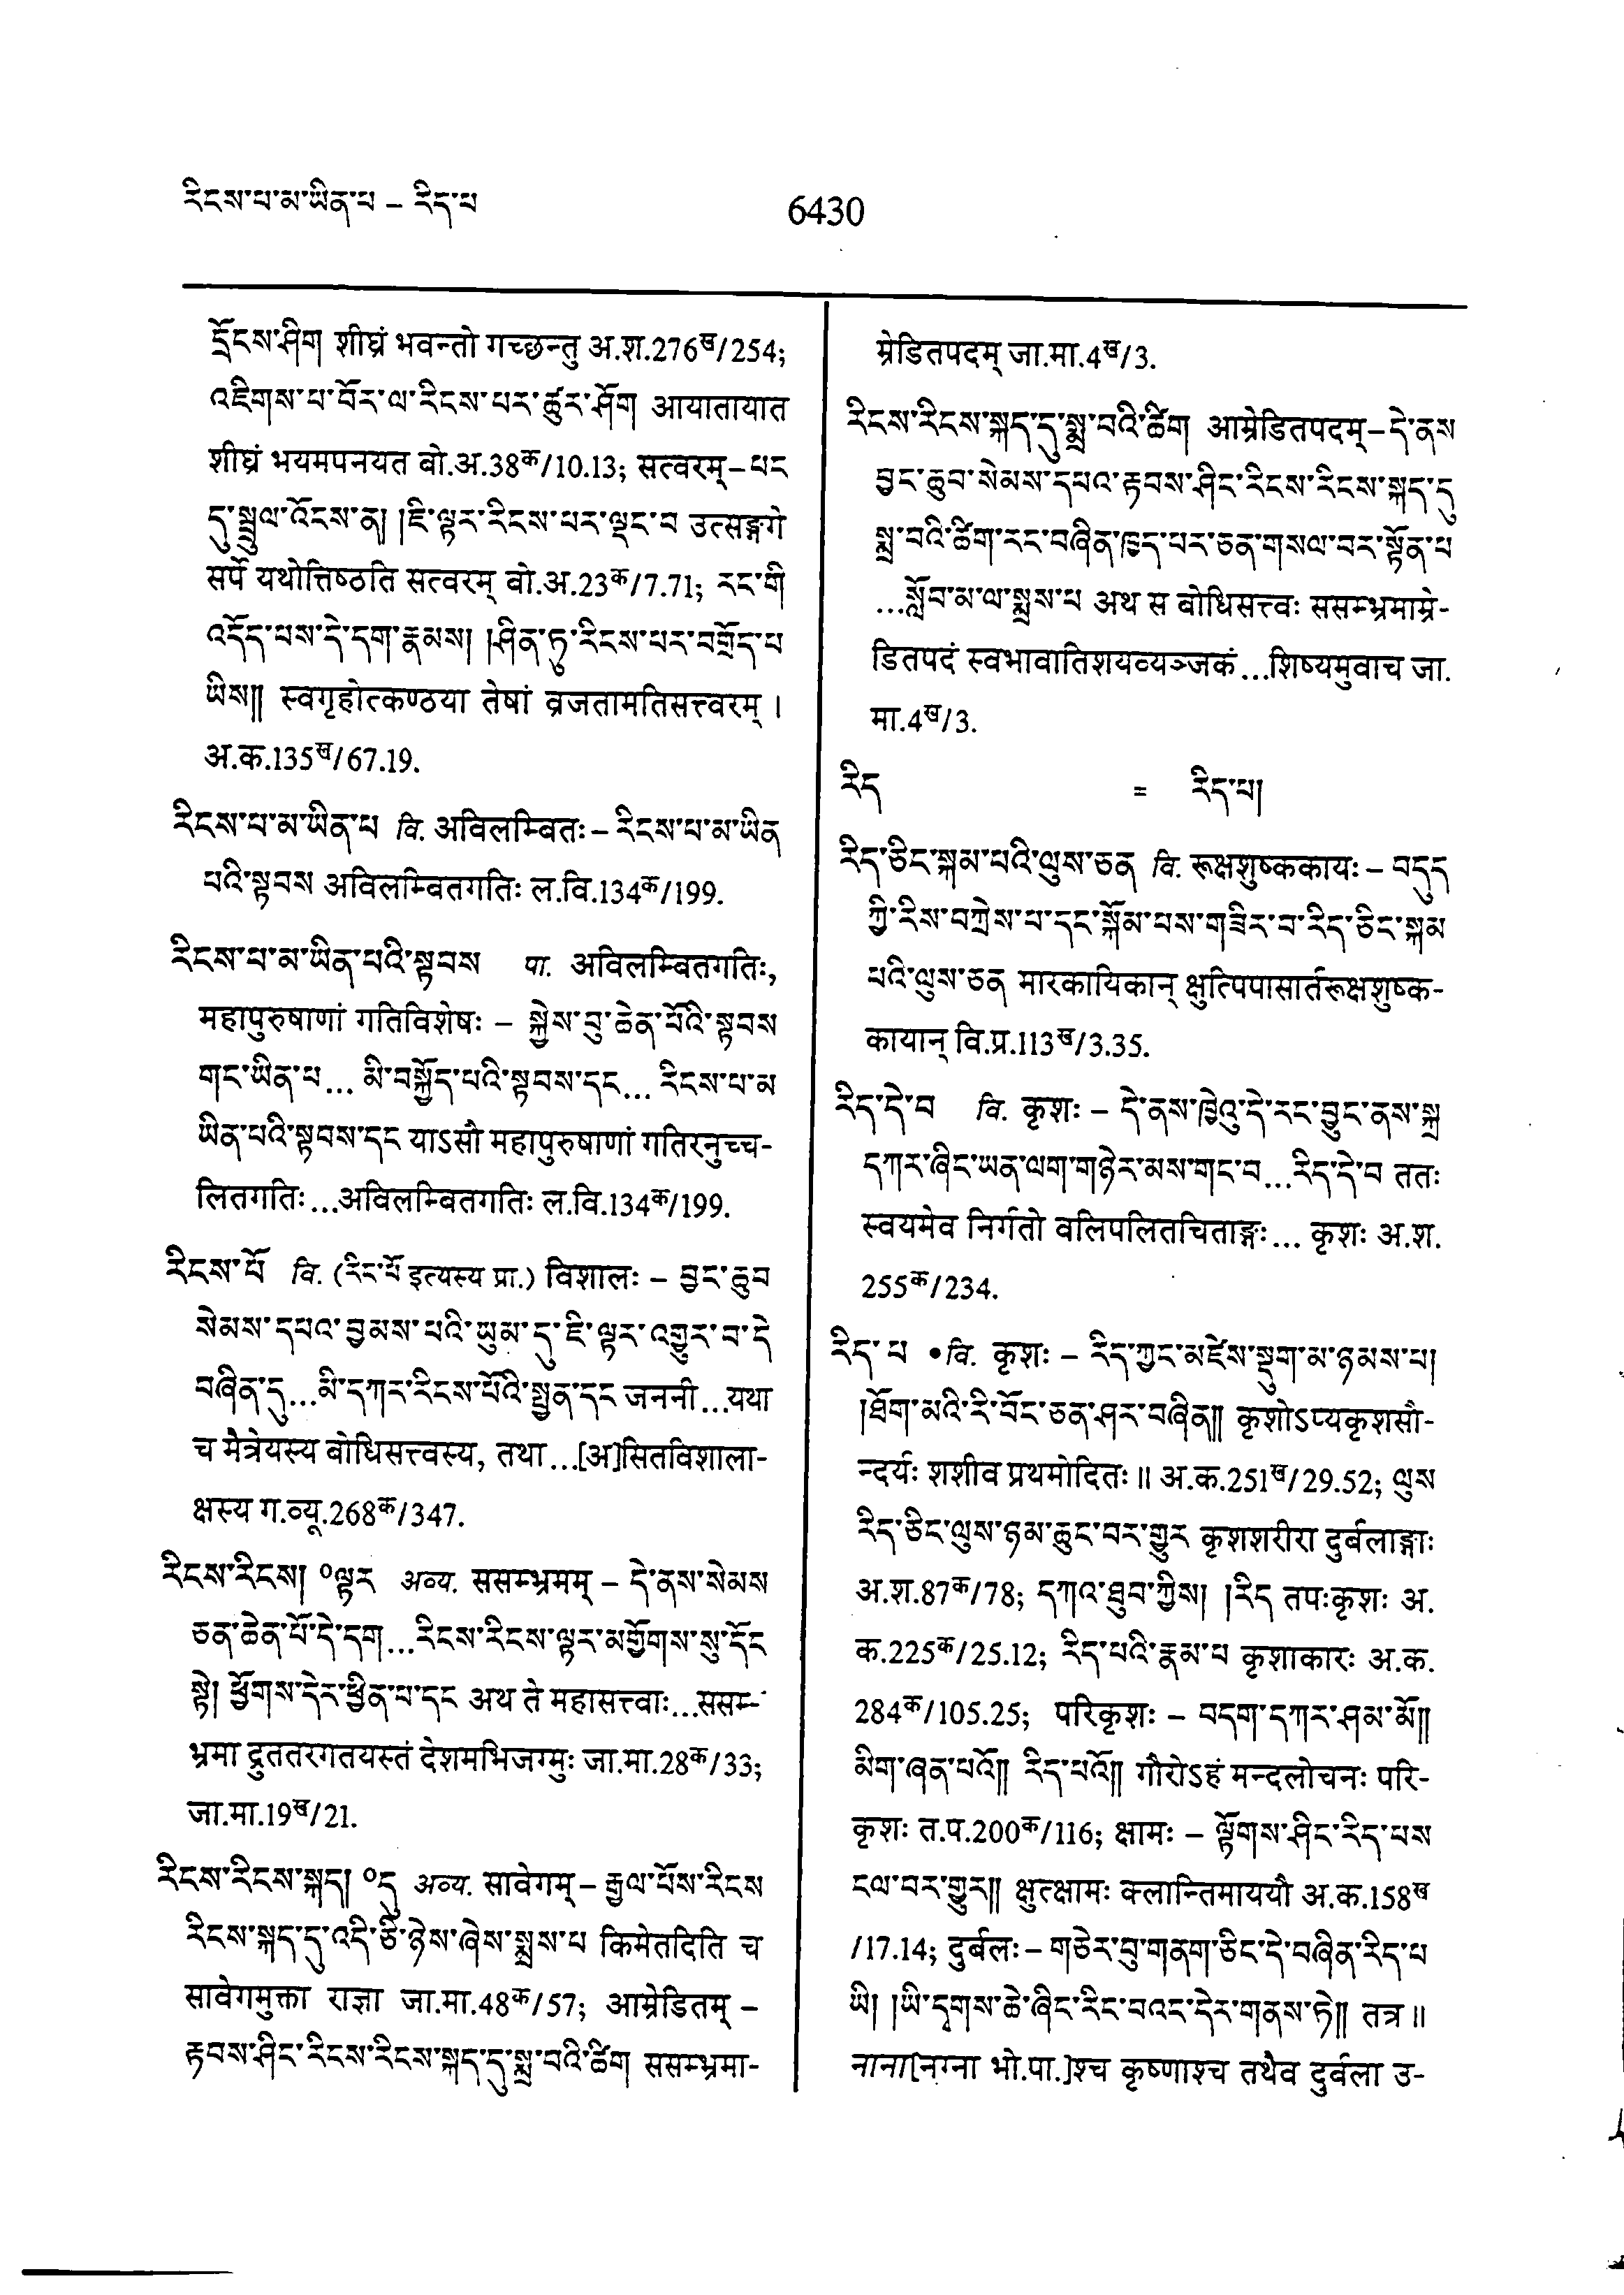 རིངས་པ་མ་ཡིན་པ – རིད་པ
6430
དོངས་ཤིག शीघ्रं भवन्तो गच्छन्तु अ.श.276ख/254;
འཇིགས་པ་བོར་ལ་རིངས་པར་ཚུར་ཤོག आयातायात
शीघ्रं भयमपनयत बो.अ.38क/10.13; सत्वरम् – པང
དུ་སྦྲུལ་འོངས་ན། །ཇི་ལྟར་རིངས་པར་ལྡང་བ उत्सङ्गगे
सर्पे यथोत्तिष्ठति सत्वरम् बो.अ.23क/7.71; རང་གི
འདོད་པས་དེ་དག་རྣམས། །ཤིན་ཏུ་རིངས་པར་བགྲོད་པ
ཡིས༎ स्वगृहोत्कण्ठया तेषां व्रजतामतिसत्त्वरम् ।
अ.क.135ख/67.19.
རིངས་པ་མ་ཡིན་པ वि. अविलम्बितः – རིངས་པ་མ་ཡིན
པའི་སྟབས अविलम्बितगतिः ल.वि.134क/199.
རིངས་པ་མ་ཡིན་པའི་སྟབས पा. अविलम्बितगतिः,
महापुरुषाणां गतिविशेषः – སྐྱེས་བུ་ཆེན་པོའི་སྟབས
གང་ཡིན་པ... མི་བསྐྱོད་པའི་སྟབས་དང... རིངས་པ་མ
ཡིན་པའི་སྟབས་དང याऽसौ महापुरुषाणां गतिरनुच्च-
लितगतिः...अविलम्बितगतिः ल.वि.134क/199.
རིངས་པོ वि. (རིང་པོ इत्यस्य प्रा.) विशालः – བྱང་ཆུབ
སེམས་དཔའ་བྱམས་པའི་ཡུམ་དུ་ཇི་ལྟར་འགྱུར་བ་དེ
བཞིན་དུ...མི་དཀར་རིངས་པོའི་སྤྱན་དང जननी...यथा
च मैत्रेयस्य बोधिसत्त्वस्य, तथा...[अ]सितविशाला-
क्षस्य ग.व्यू.268क/347.
རིངས་རིངས། ༠ལྟར अव्य. ससम्भ्रमम् – དེ་ནས་སེམས
ཅན་ཆེན་པོ་དེ་དག...རིངས་རིངས་ལྟར་མགྱོགས་སུ་དོང
སྟེ། ཕྱོགས་དེར་ཕྱིན་པ་དང अथ ते महासत्त्वाः...ससम्-
भ्रमा द्रुततरगतयस्तं देशमभिजग्मुः जा.मा.28क/33;
जा.मा.19ख/21.
རིངས་རིངས་སྐད། ༠དུ अव्य. सावेगम् – རྒྱལ་པོས་རིངས
རིངས་སྐད་དུ་འདི་ཅི་ཉེས་ཞེས་སྨྲས་པ किमेतदिति च
सावेगमुक्ता राज्ञा जा.मा.48क/57; आम्रेडितम् –
རྟབས་ཤིང་རིངས་རིངས་སྐད་དུ་སྨྲ་བའི་ཚིག ससम्भ्रमा-
म्रेडितपदम् जा.मा.4ख/3.
རིངས་རིངས་སྐད་དུ་སྨྲ་བའི་ཚིག आम्रेडितपदम् – དེ་ནས
བྱང་ཆུབ་སེམས་དཔའ་རྟབས་ཤིང་རིངས་རིངས་སྐད་དུ
སྨྲ་བའི་ཚིག་རང་བཞིན་ཁྱད་པར་ཅན་གསལ་བར་སྟོན་པ
...སློབ་མ་ལ་སྨྲས་པ अथ स बोधिसत्त्वः ससम्भ्रमाम्रे-
डितपदं स्वभावातिशयव्यञ्जकं...शिष्यमुवाच जा.
मा.4ख/3.
རིད = རིད་པ།
རིད་ཅིང་སྐམ་པའི་ལུས་ཅན वि. रूक्षशुष्ककायः – བདུད
ཀྱི་རིས་བཀྲེས་པ་དང་སྐོམ་པས་གཟིར་བ་རིད་ཅིང་སྐམ
པའི་ལུས་ཅན मारकायिकान् क्षुत्पिपासार्तरूक्षशुष्क-
कायान् वि.प्र.113ख/3.35.
རིད་དེ་བ वि. कृशः – དེ་ནས་ཁྱེའུ་དེ་རང་བྱུང་ནས་སྐྲ
དཀར་ཞིང་ཡན་ལག་གཉེར་མས་གང་བ...རིད་དེ་བ ततः
स्वयमेव निर्गतो वलिपलितचिताङ्गः... कृशः अ.श.
255क/234.
རིད་པ •वि. कृशः – རིད་ཀྱང་མཛེས་སྡུག་མ་ཉམས་པ།
།ཐོག་མའི་རི་བོང་ཅན་ཤར་བཞིན༎ कृशोऽप्यकृशसौ-
न्दर्यः शशीव प्रथमोदितः ॥ अ.क.251ख/29.52; ལུས
རིད་ཅིང་ལུས་ཉམ་ཆུང་བར་གྱུར कृशशरीरा दुर्बलाङ्गाः
अ.श.87क/78; དཀའ་ཐུབ་ཀྱིས། །རིད तपःकृशः अ.
क.225क/25.12; རིད་པའི་རྣམ་པ कृशाकारः अ.क.
284क/105.25; परिकृशः – བདག་དཀར་ཤམ་མོ༎
མིག་ཞན་པའོ༎ རིད་པའོ༎ गौरोऽहं मन्दलोचनः परि-
कृशः त.प.200क/116; क्षामः – ལྟོགས་ཤིང་རིད་པས
ངལ་བར་གྱུར༎ क्षुत्क्षामः क्लान्तिमाययौ अ.क.158ख
/17.14; दुर्बलः – གཅེར་བུ་གནག་ཅིང་དེ་བཞིན་རིད་པ
ཡི། །ཡི་དྭགས་ཆེ་ཞིང་རིང་བའང་དེར་གནས་ཏེ༎ तत्र ॥
नाना[नग्ना भो.पा.]श्च कृष्णाश्च तथैव दुर्बला उ-